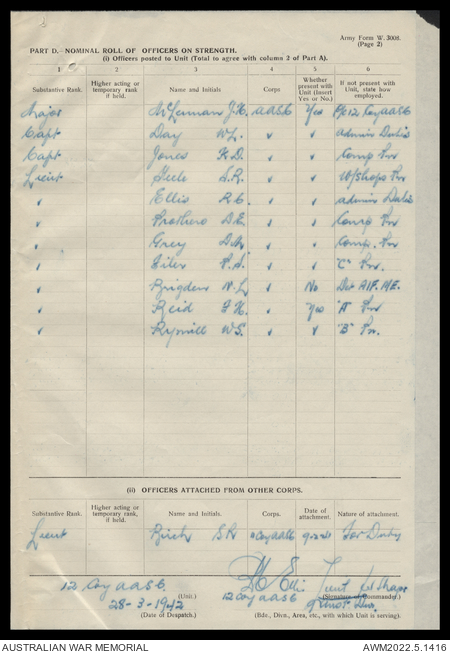 Army Form W. 3008.
(Page 2)
PART D.-NOMINAL ROLL OF OFFICERS ON STRENGTH.
(i) Officers posted to Unit (Total to agree with column 2 of Part A).
1 2 3 4 5 6
Substantive Rank. Higher acting or temporary rank if held. Name and Initials Corps Whether present with Unit (Insert Yes or No.) If not present with Unit, state how employed.
Major J.H. AASC Yes 12 Coy AASC
Capt Day W.L. ✓ ✓ Admin Duties
Capt Jones K.D. ✓ ✓ Comp
Lieut S.R. ✓ ✓ W/Shops
✓ Ellis R.C. ✓ ✓ Admin Duties
✓ Prothero D.E. ✓ ✓ Comp
✓ Grey D.A. ✓ ✓ Comp.
✓ ✓ ✓ "C"
✓ Brigden N.L. ✓ No Det AIF. M/E.
✓ Reid F.K. ✓ Yes "A"
✓ Rymill W.S. ✓ ✓ "B"
(ii) OFFICERS ATTACHED FROM OTHER CORPS.
Substantive Rank. Higher acting or temporary rank, if held. Name and Initials. Corps. Date of attachment. Nature of attachment.
Lieut Birch S.R. Coy AASC For Duty
12 Coy AASC (Unit.) Ellis Lieut
(Signature of Commander.)
28-3-1942 12 Coy AASC
(Date of Despatch.) (Bde., Divn., Area, etc., with which Unit is serving).
AUSTRALIAN WAR MEMORIAL AWM2022.5.1416